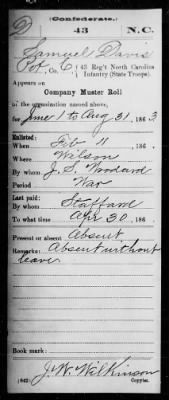 D
(Confederate.)
43 N.C.
Samuel Davis
Pvt, Co. C, 43 Reg't North Carolina
Infantry (State Troops).
Appears on
Company Muster Roll
of the organization named above,
for June 1 to Aug 31, 1863
Enlisted:
When Feb 11, 186
Where Wilson
By whom J. S. Woodard
Period War
Last paid:
By whom Staffard
To what time Apr 30, 186
Present or absent Absent
Remarks: Absent without
leave
Book mark:
J. W. Wilkinson
(642) Copyist.